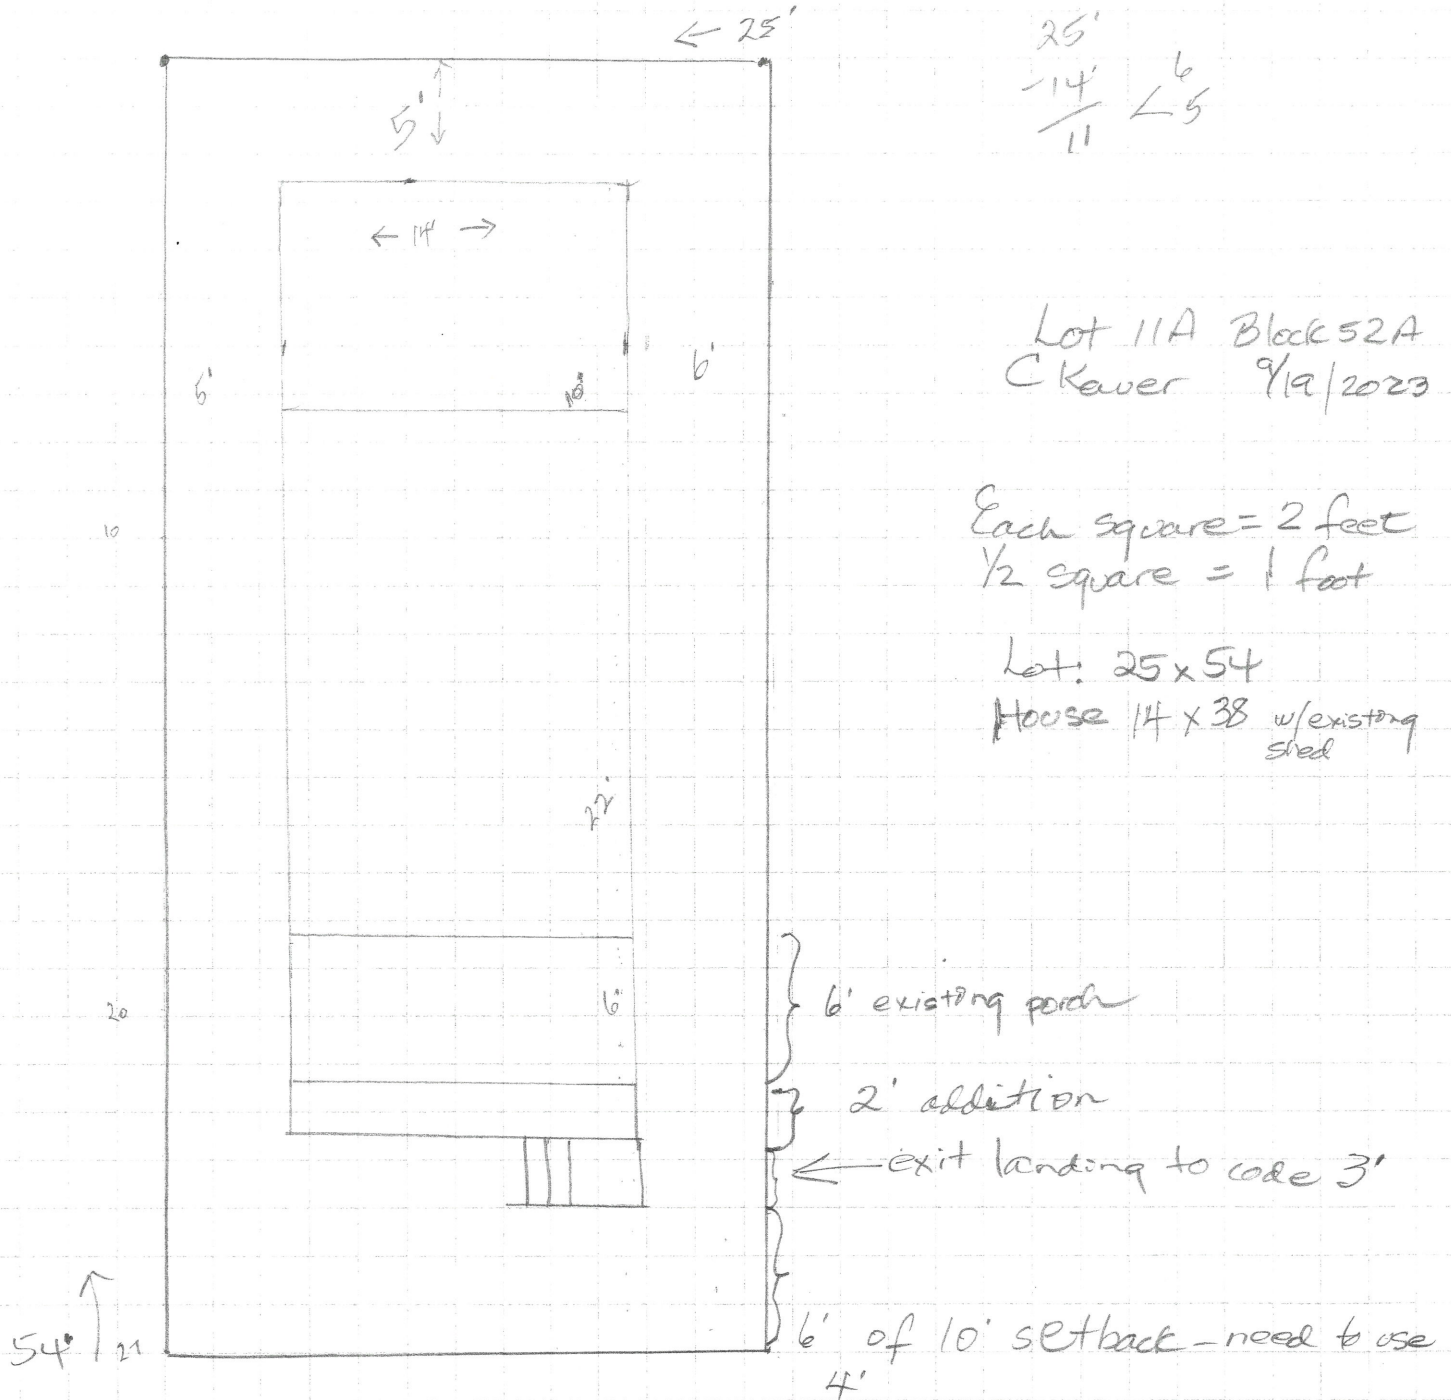 ← 25'
25'
-14'
11 < 6
5
5'
← 14' →
Lot 11A Block 52A
5'
6'
C Kever 9/19/2023
10
Each square = 2 feet
1/2 square = 1 foot
Lot: 25 x 54
House 14 x 38 w/existing
shed
22'
20
6'
6' existing porch
2' addition
exit landing to code 3'
54' 27
6' of 10' setback - need to use
4'